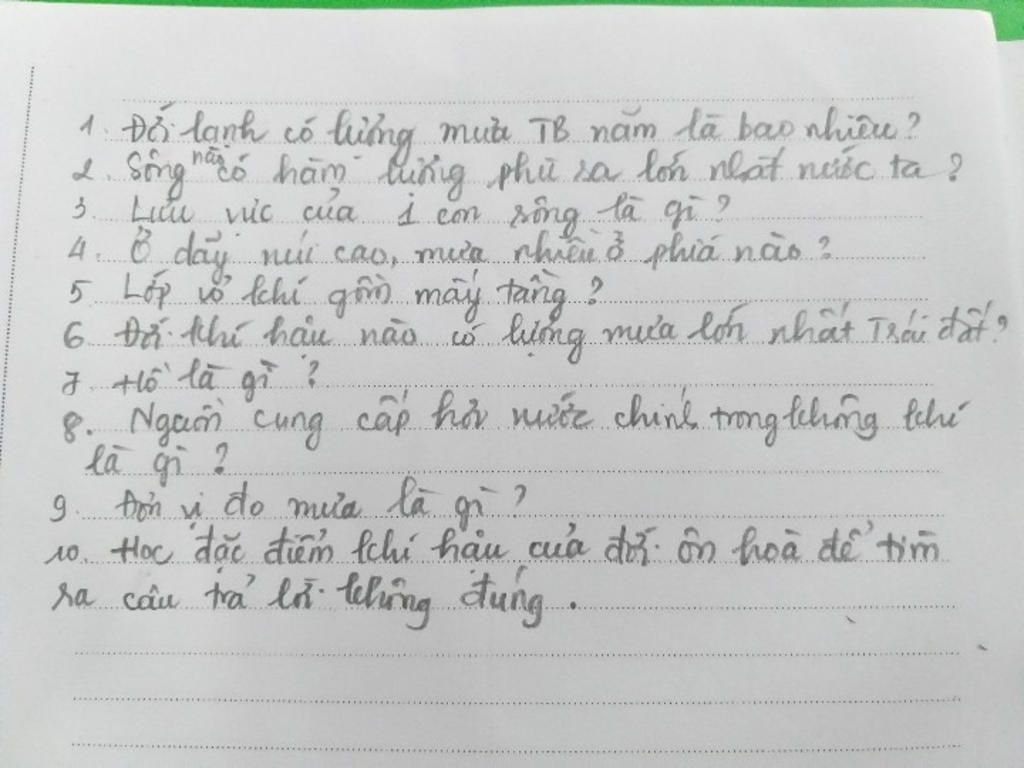 1. Đới lạnh có lượng mưa TB năm là bao nhiêu?
2. Sông nào có hàm lượng phù sa lớn nhất nước ta?
3. Lưu vực của 1 con sông là gì?
4. Ở dãy núi cao, mưa nhiều ở phía nào?
5 Lớp vỏ khí gồm mấy tầng?
6 Đới khí hậu nào có lượng mưa lớn nhất Trái đất?
7 Hồ là gì?
8. Nguồn cung cấp hơi nước chính trong không khí
là gì?
9. Đơn vị đo mưa là gì?
10. Học đặc điểm khí hậu của đới ôn hoà để tìm
ra câu trả lời không đúng.